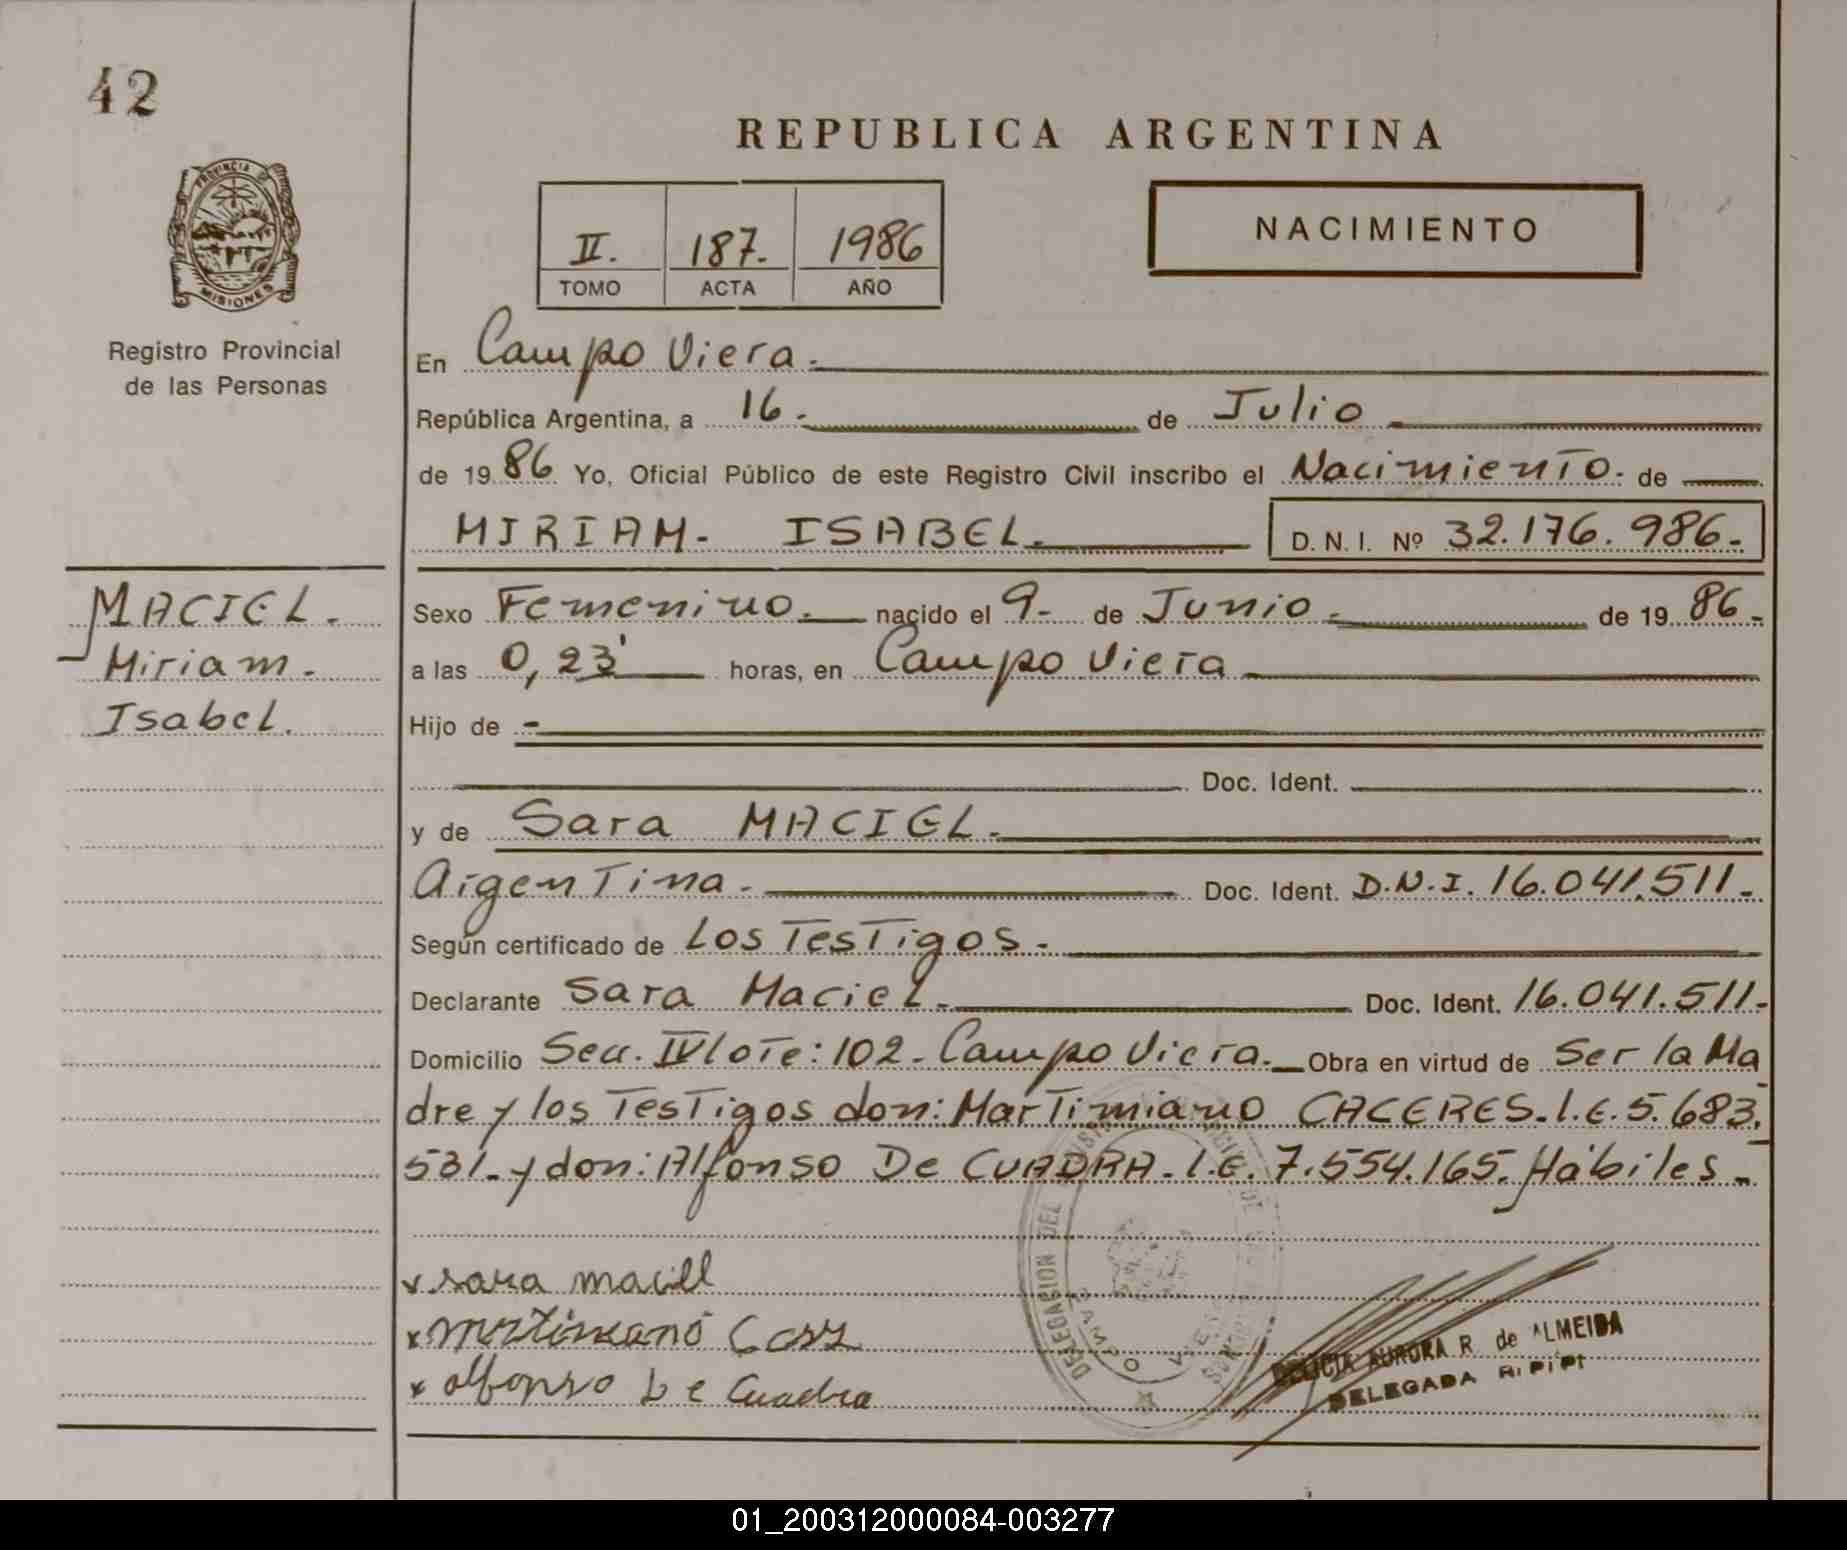 42
REPUBLICA ARGENTINA
PROVINCIA DE
MISIONES
Registro Provincial
de las Personas
II. 187. 1986
TOMO ACTA AÑO
NACIMIENTO
En Campo Viera.
República Argentina, a 16. de Julio
de 1986. Yo, Oficial Público de este Registro Civil inscribo el Nacimiento. de
MIRIAM. ISABEL. D. N. I. Nº 32.176.986.
MACIEL.
Miriam.
Isabel.
Sexo Femenino. nacido el 9- de Junio. de 1986.
a las 0,23' horas, en Campo Viera
Hijo de -
Doc. Ident.
y de Sara MACIEL.
Argentina. Doc. Ident. D.N.I. 16.041.511.
Según certificado de Los Testigos.
Declarante Sara Maciel. Doc. Ident. 16.041.511.
Domicilio Secc. IV lote: 102. Campo Viera. Obra en virtud de Ser la Ma
dre y los Testigos don: Martimiano CACERES. l.E. 5.683.
531. y don: Alfonso De CUADRA. l.E. 7.554.165. Hábiles.
x sara maciell
x
x alfonso De Cuadra
DELEGASION DEL
CAMPO VIERA
DELICIA AURORA R. de ALMEIDA
DELEGADA R. P. P.
01_200312000084-003277